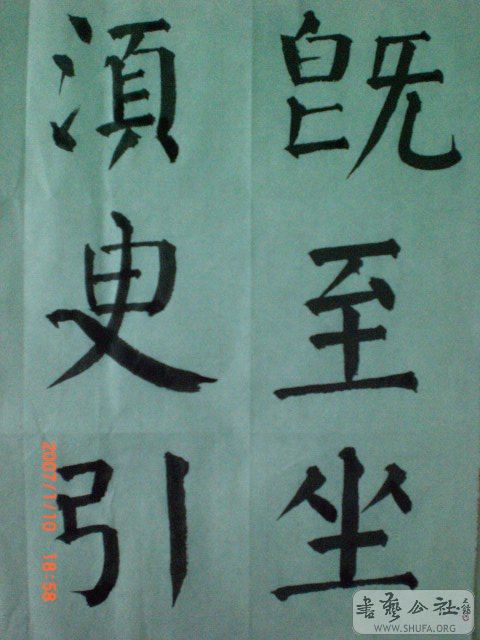 既至坐
須臾引
2007/1/10 18:58
書藝公社
WWW.SHUFA.ORG